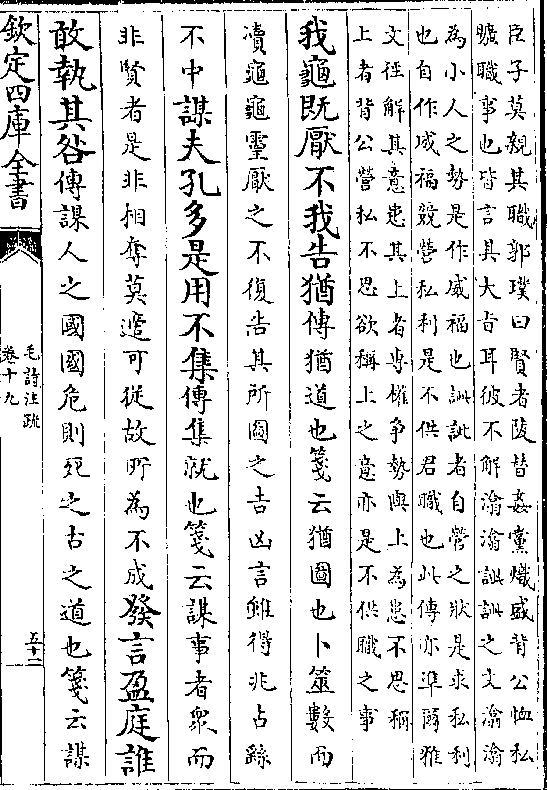 臣子莫親其職郭璞曰賢者陵替姦黨熾盛背公恤私
曠職事也皆言其大旨耳彼不解潝潝訿訿之文潝潝
為小人之勢是作威福也訿訿者自營之狀是求私利
也自作威福競營私利是不供君職也此傳亦準爾雅
文徑解其意患其上者専權争勢與上為患不思稱
上者背公營私不思欲稱上之意亦是不供職之事
我龜既厭不我告猶傳猶道也箋云猶圖也卜筮數而
瀆龜龜靈厭之不復告其所圖之吉凶言雖得兆占繇
不中謀夫孔多是用不集傳集就也箋云謀事者衆而
非賢者是非相奪莫適可從故所為不成發言盈庭誰
敢執其咎傳謀人之國國危則死之古之道也箋云謀
欽定四庫全書
毛詩注疏
卷十九
五十二